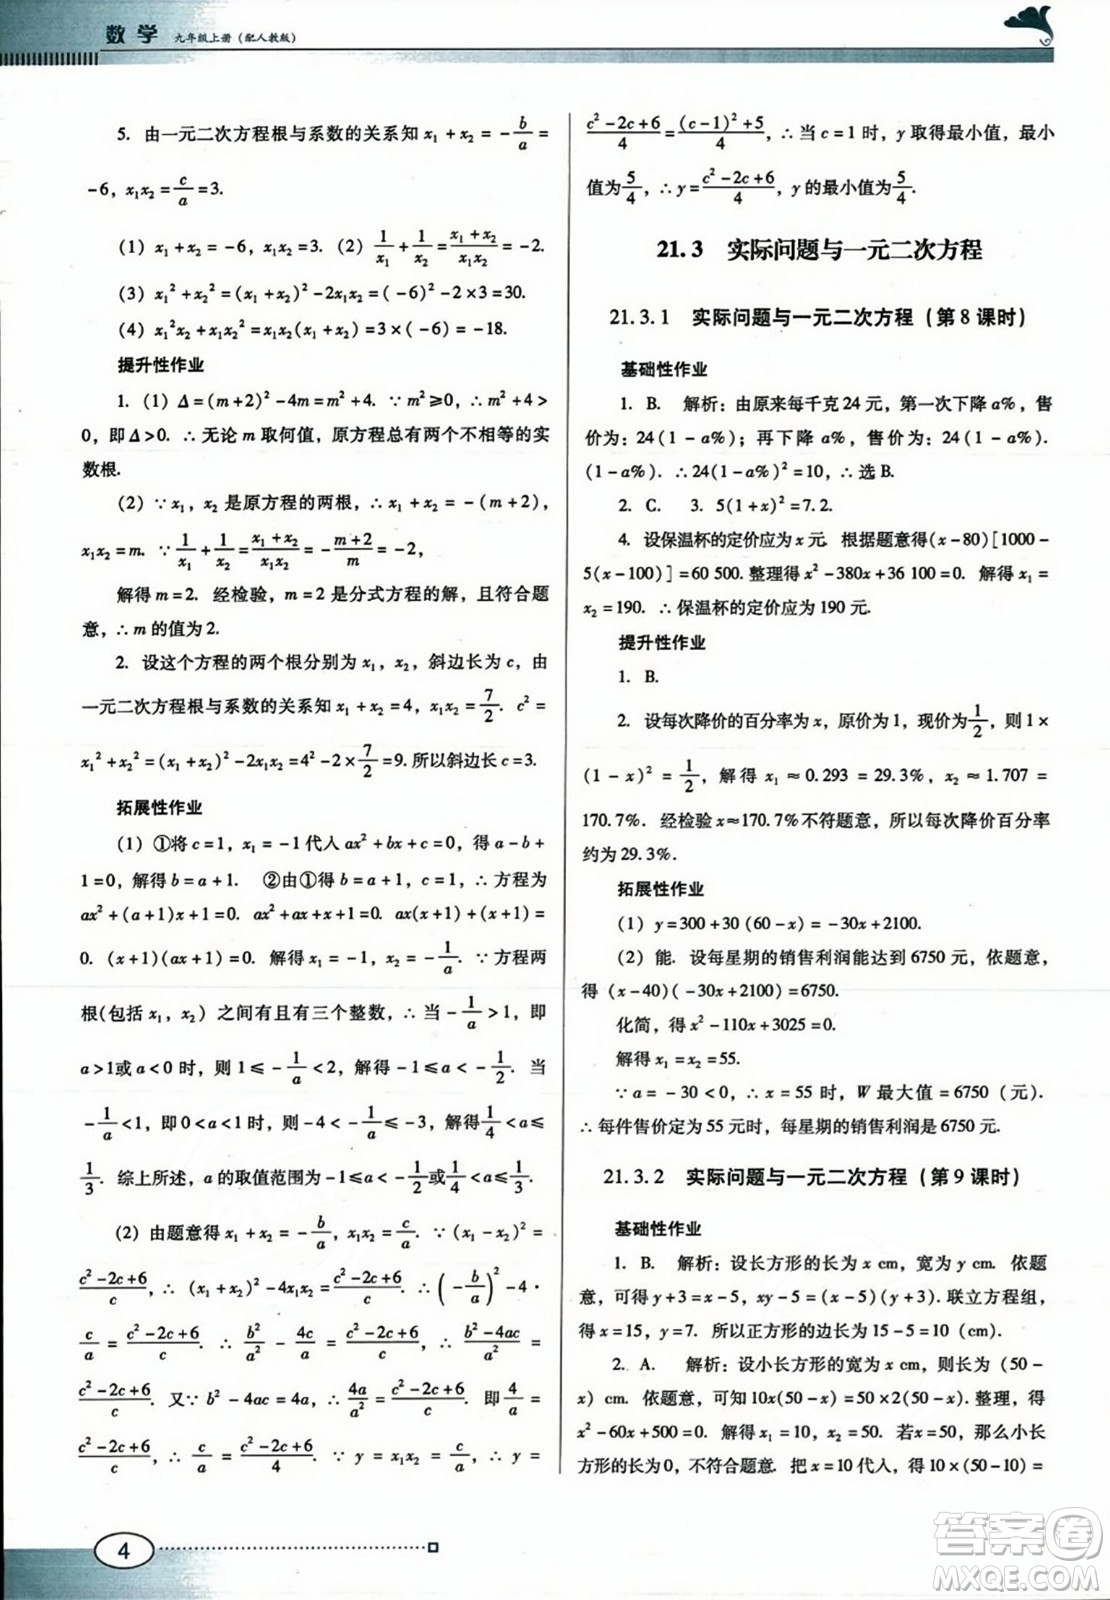 数学 九年级上册（配人教版）
5. 由一元二次方程根与系数的关系知 x₁+x₂=-b/a=
-6，x₁x₂=c/a=3.
(1) x₁+x₂=-6，x₁x₂=3. (2) 1/x₁+1/x₂=(x₁+x₂)/(x₁x₂)=-2.
(3) x₁²+x₂²=(x₁+x₂)²-2x₁x₂=(-6)²-2×3=30.
(4) x₁²x₂+x₁x₂²=x₁x₂(x₁+x₂)=3×(-6)=-18.
提升性作业
1. (1) Δ=(m+2)²-4m=m²+4. ∵m²≥0，∴m²+4>
0，即Δ>0. ∴无论 m 取何值，原方程总有两个不相等的实
数根.
(2) ∵x₁，x₂ 是原方程的两根，∴x₁+x₂=-(m+2)，
x₁x₂=m. ∵1/x₁+1/x₂=(x₁+x₂)/(x₁x₂)=-(m+2)/m=-2，
解得 m=2. 经检验，m=2 是分式方程的解，且符合题
意，∴m 的值为 2.
2. 设这个方程的两个根分别为 x₁，x₂，斜边长为 c，由
一元二次方程根与系数的关系知 x₁+x₂=4，x₁x₂=7/2. c²=
x₁²+x₂²=(x₁+x₂)²-2x₁x₂=4²-2×7/2=9. 所以斜边长 c=3.
拓展性作业
(1) ①将 c=1，x₁=-1代人 ax²+bx+c=0，得 a-b+
1=0，解得 b=a+1. ②由①得 b=a+1，c=1，∴方程为
ax²+(a+1)x+1=0. ax²+ax+x+1=0. ax(x+1)+(x+1)=
0. (x+1)(ax+1)=0. 解得 x₁=-1，x₂=-1/a. ∵方程两
根(包括 x₁，x₂) 之间有且有三个整数，∴当 -1/a>1，即
a>1或 a<0 时，则 1≤-1/a<2，解得 -1<a≤-1/2. 当
-1/a<1，即 0<a<1 时，则 -4<-1/a≤-3，解得 1/4<a≤
1/3. 综上所述，a 的取值范围为 -1≤a≤-1/2或1/4<a≤1/3.
(2) 由题意得 x₁+x₂=-b/a，x₁x₂=c/a. ∵(x₁-x₂)²=
(c²-2c+6)/c，∴(x₁+x₂)²-4x₁x₂=(c²-2c+6)/c. ∴(-b/a)²-4·
c/a=(c²-2c+6)/c. ∴b²/a²-4c/a=(c²-2c+6)/c. ∴(b²-4ac)/a²=
(c²-2c+6)/c. 又∵b²-4ac=4a，∴4a/a²=(c²-2c+6)/c. 即 4/a=
(c²-2c+6)/c. ∴c/a=(c²-2c+6)/4. ∵y=x₁x₂=c/a，∴y=
(c²-2c+6)/4=((c-1)²+5)/4，∴当 c=1 时，y 取得最小值，最小
值为5/4，∴y=(c²-2c+6)/4，y 的最小值为5/4.
21.3 实际问题与一元二次方程
21.3.1 实际问题与一元二次方程（第 8 课时）
基础性作业
1. B. 解析：由原来每千克 24 元，第一次下降 a%，售
价为：24(1-a%)；再下降 a%，售价为：24(1-a%).
(1-a%). ∴24(1-a%)²=10，∴选 B.
2. C. 3. 5(1+x)²=7.2.
4. 设保温杯的定价应为 x 元. 根据题意得(x-80)[1000-
5(x-100)]=60 500. 整理得 x²-380x+36 100=0. 解得 x₁=
x₂=190. ∴保温杯的定价应为 190 元.
提升性作业
1. B.
2. 设每次降价的百分率为 x，原价为 1，现价为1/2，则 1×
(1-x)²=1/2，解得 x₁≈0.293=29.3%，x₂≈1.707=
170.7%. 经检验 x≈170.7%不符题意，所以每次降价百分率
约为 29.3%.
拓展性作业
(1) y=300+30(60-x)=-30x+2100.
(2) 能. 设每星期的销售利润能达到 6750 元，依题意，
得 (x-40)(-30x+2100)=6750.
化简，得 x²-110x+3025=0.
解得 x₁=x₂=55.
∵a=-30<0，∴x=55 时，W 最大值=6750（元）.
∴每件售价定为 55 元时，每星期的销售利润是 6750 元.
21.3.2 实际问题与一元二次方程（第 9 课时）
基础性作业
1. B. 解析：设长方形的长为 x cm，宽为 y cm. 依题
意，可得 y+3=x-5，xy-5=(x-5)(y+3). 联立方程组，
得 x=15，y=7. 所以正方形的边长为 15-5=10（cm）.
2. A. 解析：设小长方形的宽为 x cm，则长为（50-
x）cm. 依题意，可知 10x(50-x)=50×2(50-x). 整理，得
x²-60x+500=0. 解得 x₁=10，x₂=50. 若 x=50，那么小长
方形的长为 0，不符合题意. 把 x=10 代人，得 10×(50-10)=
4
答案圈
MXQE.COM